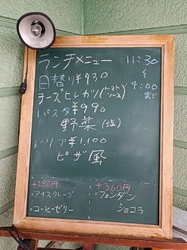 ランチメニュー
11:30
〜
9:00
まで
日替り ¥930
チーズヒレカツ(トマトソース)
パスタ ¥990
野菜(塩)
ドリア ¥1.100
ピザ風
+280円
アイスクレープ
・コーヒーゼリー
+360円
フォンダン
ショコラ